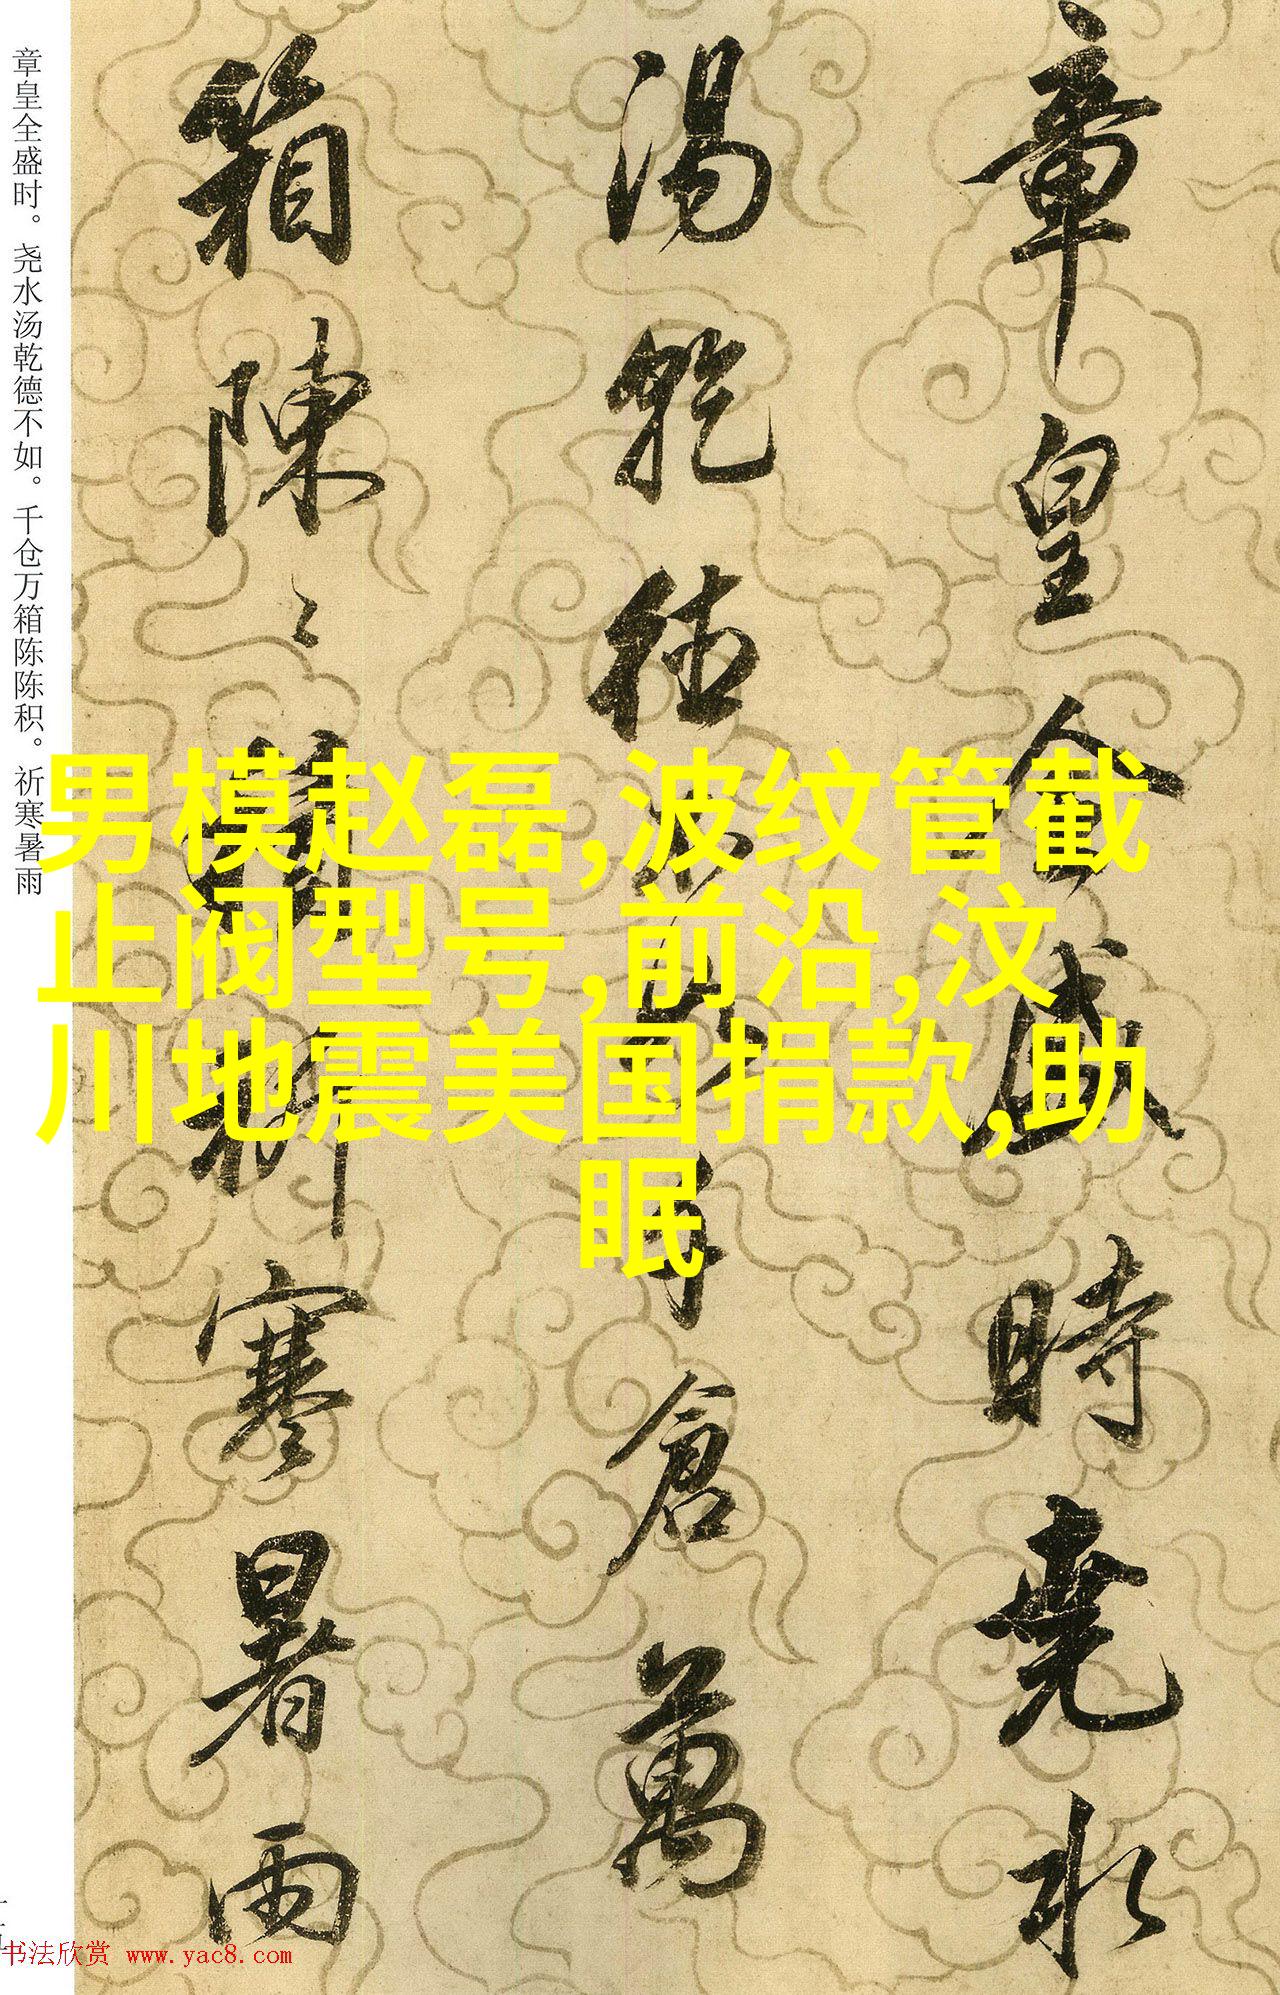 章皇全盛时。尧水汤乾德不如。千仓万箱陈陈积。祈寒暑雨
章皇全盛時堯水
湯乾德不如千倉萬
箱陳〻積祈寒暑雨
男模赵磊,波纹管截
止阀型号,前沿,汶
川地震美国捐款,助
眠
书法欣赏 www.yac8.com